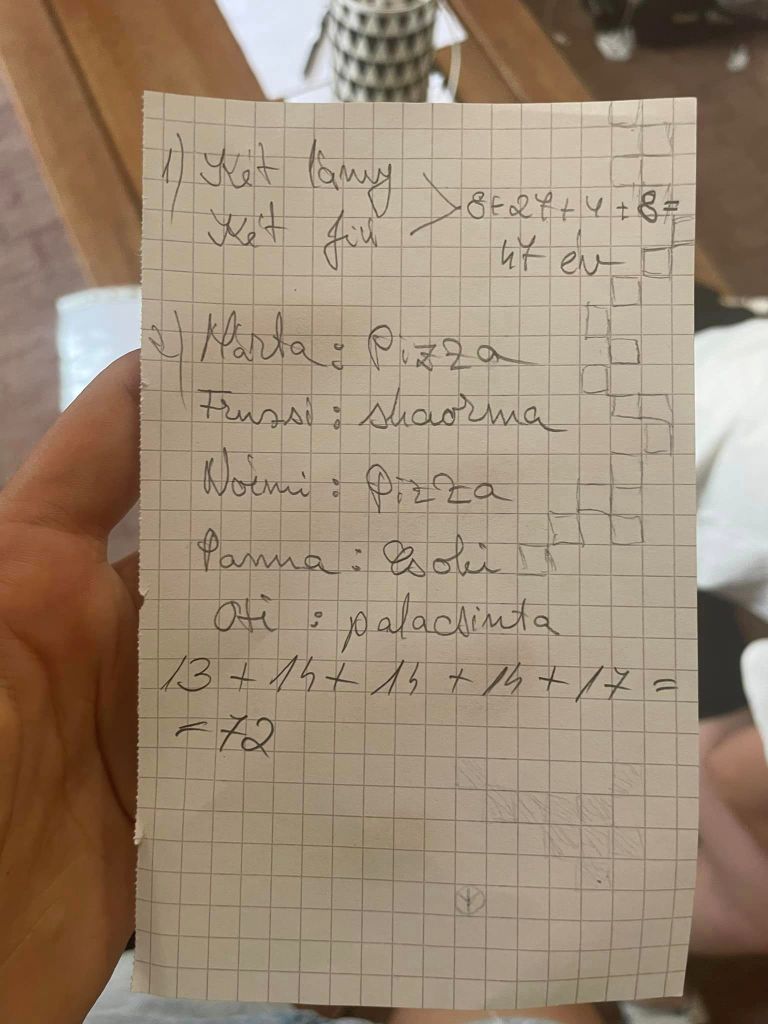 1) Két lány
Két fiú
8+27+4+8=
47 év
2) Márta: Pizza
Fruzsi: shaorma
Noémi: Pizza
Panna: Csoki
Oti: palacsinta
13+14+14+14+17=
=72